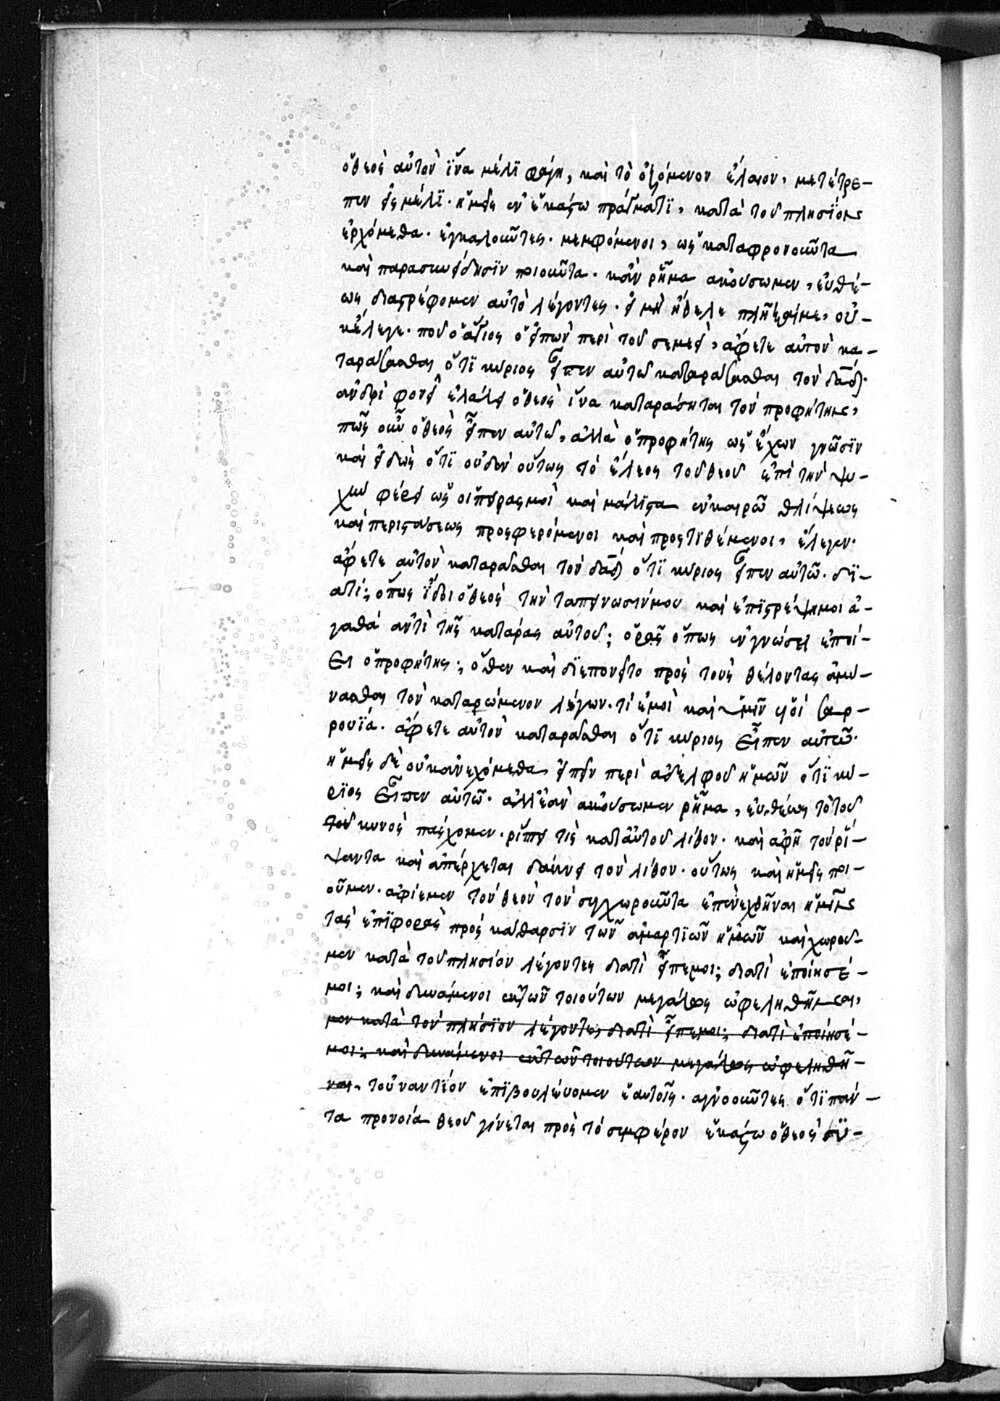 ὁ θεὸς αὐτὸν ἵνα μέλϊ φάγη, καὶ τὸ ὀζόμενον ἔλαιον, μετέτρε-
πεν εἰς μέλϊ. ἡμεῖς ἐν ἑκάστω πράγματϊ, κατὰ τοῦ πλησϊόν
ἐρχόμεθα. ἐγκαλοῦντες. μεμφόμενοι, ὡς καταφρονοῦντα
καὶ παρασυνείδησϊν ποιοῦντα. κἂν ῥῆμα ἀκούσωμεν, εὐθέ-
ως διαστρέφομεν αὐτὸ λέγοντες. εἰ μὴ ἤθελε πλῆξαί με, οὐ-
κ ἔλεγε. ποῦ ὁ ἅγιος ὁ εἰπὼν περὶ τοῦ σεμεεὶ, ἄφετε αὐτὸν κα-
ταρᾶσθαι ὅτϊ κύριος εἶπεν αὐτῶ καταρᾶσθαι τὸν δαδ.
ἀνδρὶ φονεῖ ἐλάλει ὁ θεὸς ἵνα καταράσηται τὸν προφήτην,
πῶς οὖν ὁ θεὸς εἶπεν αὐτῶ, ἀλλὰ ὁ προφήτης ὡς ἔχων γνῶσϊν
καὶ εἰδὼς ὅτϊ οὐδὲν οὕτως τὸ ἔλεος τοῦ θεοῦ ἐπὶ τὴν ψυ-
χὴν φέρει ὡς οἱ πειρασμοὶ καὶ μάλϊστα ἐν καιρῶ θλίψεως
καὶ περιστάσεως προσφερόμενοι καὶ προστιθέμενοι, ἔλεγεν.
ἄφετε αὐτὸν καταρᾶσθαι τὸν δαδ ὅτϊ κύριος εἶπεν αὐτῶ. δϊ-
ατί; ὅπως ἴδει ὁ θεὸς τὴν ταπείνωσίν μου καὶ ἐπϊστρέψη μοι ἀ-
γαθὰ ἀντὶ τῆς κατάρας αὐτοῦ; ὁρᾶς ὅπως ἐν γνώσει ἐποί-
ει ὁ προφήτης; ὅθεν καὶ δϊεπονεῖτο πρὸς τοὺς θέλοντας ἀμύ-
νασθαι τὸν καταρώμενον λέγων. τί ἐμοὶ καὶ ὑμῖν υἱοὶ σαρ-
ρουϊά. ἄφετε αὐτὸν καταρᾶσθαι ὅτϊ κύριος εἶπεν αὐτῶ.
ἡμεῖς δὲ οὐκ ἀνεχόμεθα εἰπεῖν περὶ ἀδελφοῦ ἡμῶν ὅτϊ κύ-
ρϊος εἶπεν αὐτῶ. ἀλλ' ἐὰν ἀκούσωμεν ῥῆμα, εὐθέως τὸ τοῦ
τοῦ κυνὸς πάσχομεν. ῥίπτει τὶς κατ' αὐτοῦ λίθον. καὶ ἀφῆ τὸν ῥί-
ψαντα καὶ ἀπέρχεται δάκνει τὸν λίθον. οὕτως καὶ ἡμεῖς ποι-
οῦμεν. ἀφίεμεν τὸν θεὸν τὸν συγχωροῦντα ἐπενεχθῆναι ἡμῖν
τὰς ἐπϊφορὰς πρὸς κάθαρσϊν τῶν ἁμαρτϊῶν ἡμῶν καὶ χωροῦ-
μεν κατὰ τοῦ πλησίον λέγοντες διατὶ εἶπέ μοι; διατὶ ἐποίησέ-
μοι; καὶ δυνάμενοι ἐκ τῶν τοιούτων μεγάλως ὠφεληθῆναι,
μεν κατὰ τοῦ πλησϊον λέγοντες διατὶ εἶπέ μοι; διατὶ ἐποίησέ-
μοι; καὶ δυνάμενοι ἐκ τῶν τοιούτων μεγάλως ὠφεληθῆ-
ναι, τοὐναντίον ἐπϊβουλεύομεν ἑαυτοῖς. ἀγνοοῦντες ὅτϊ πάν-
τα προνοία θεοῦ γίνεται πρὸς τὸ συμφέρον ἑκάστω ὁ θεὸς